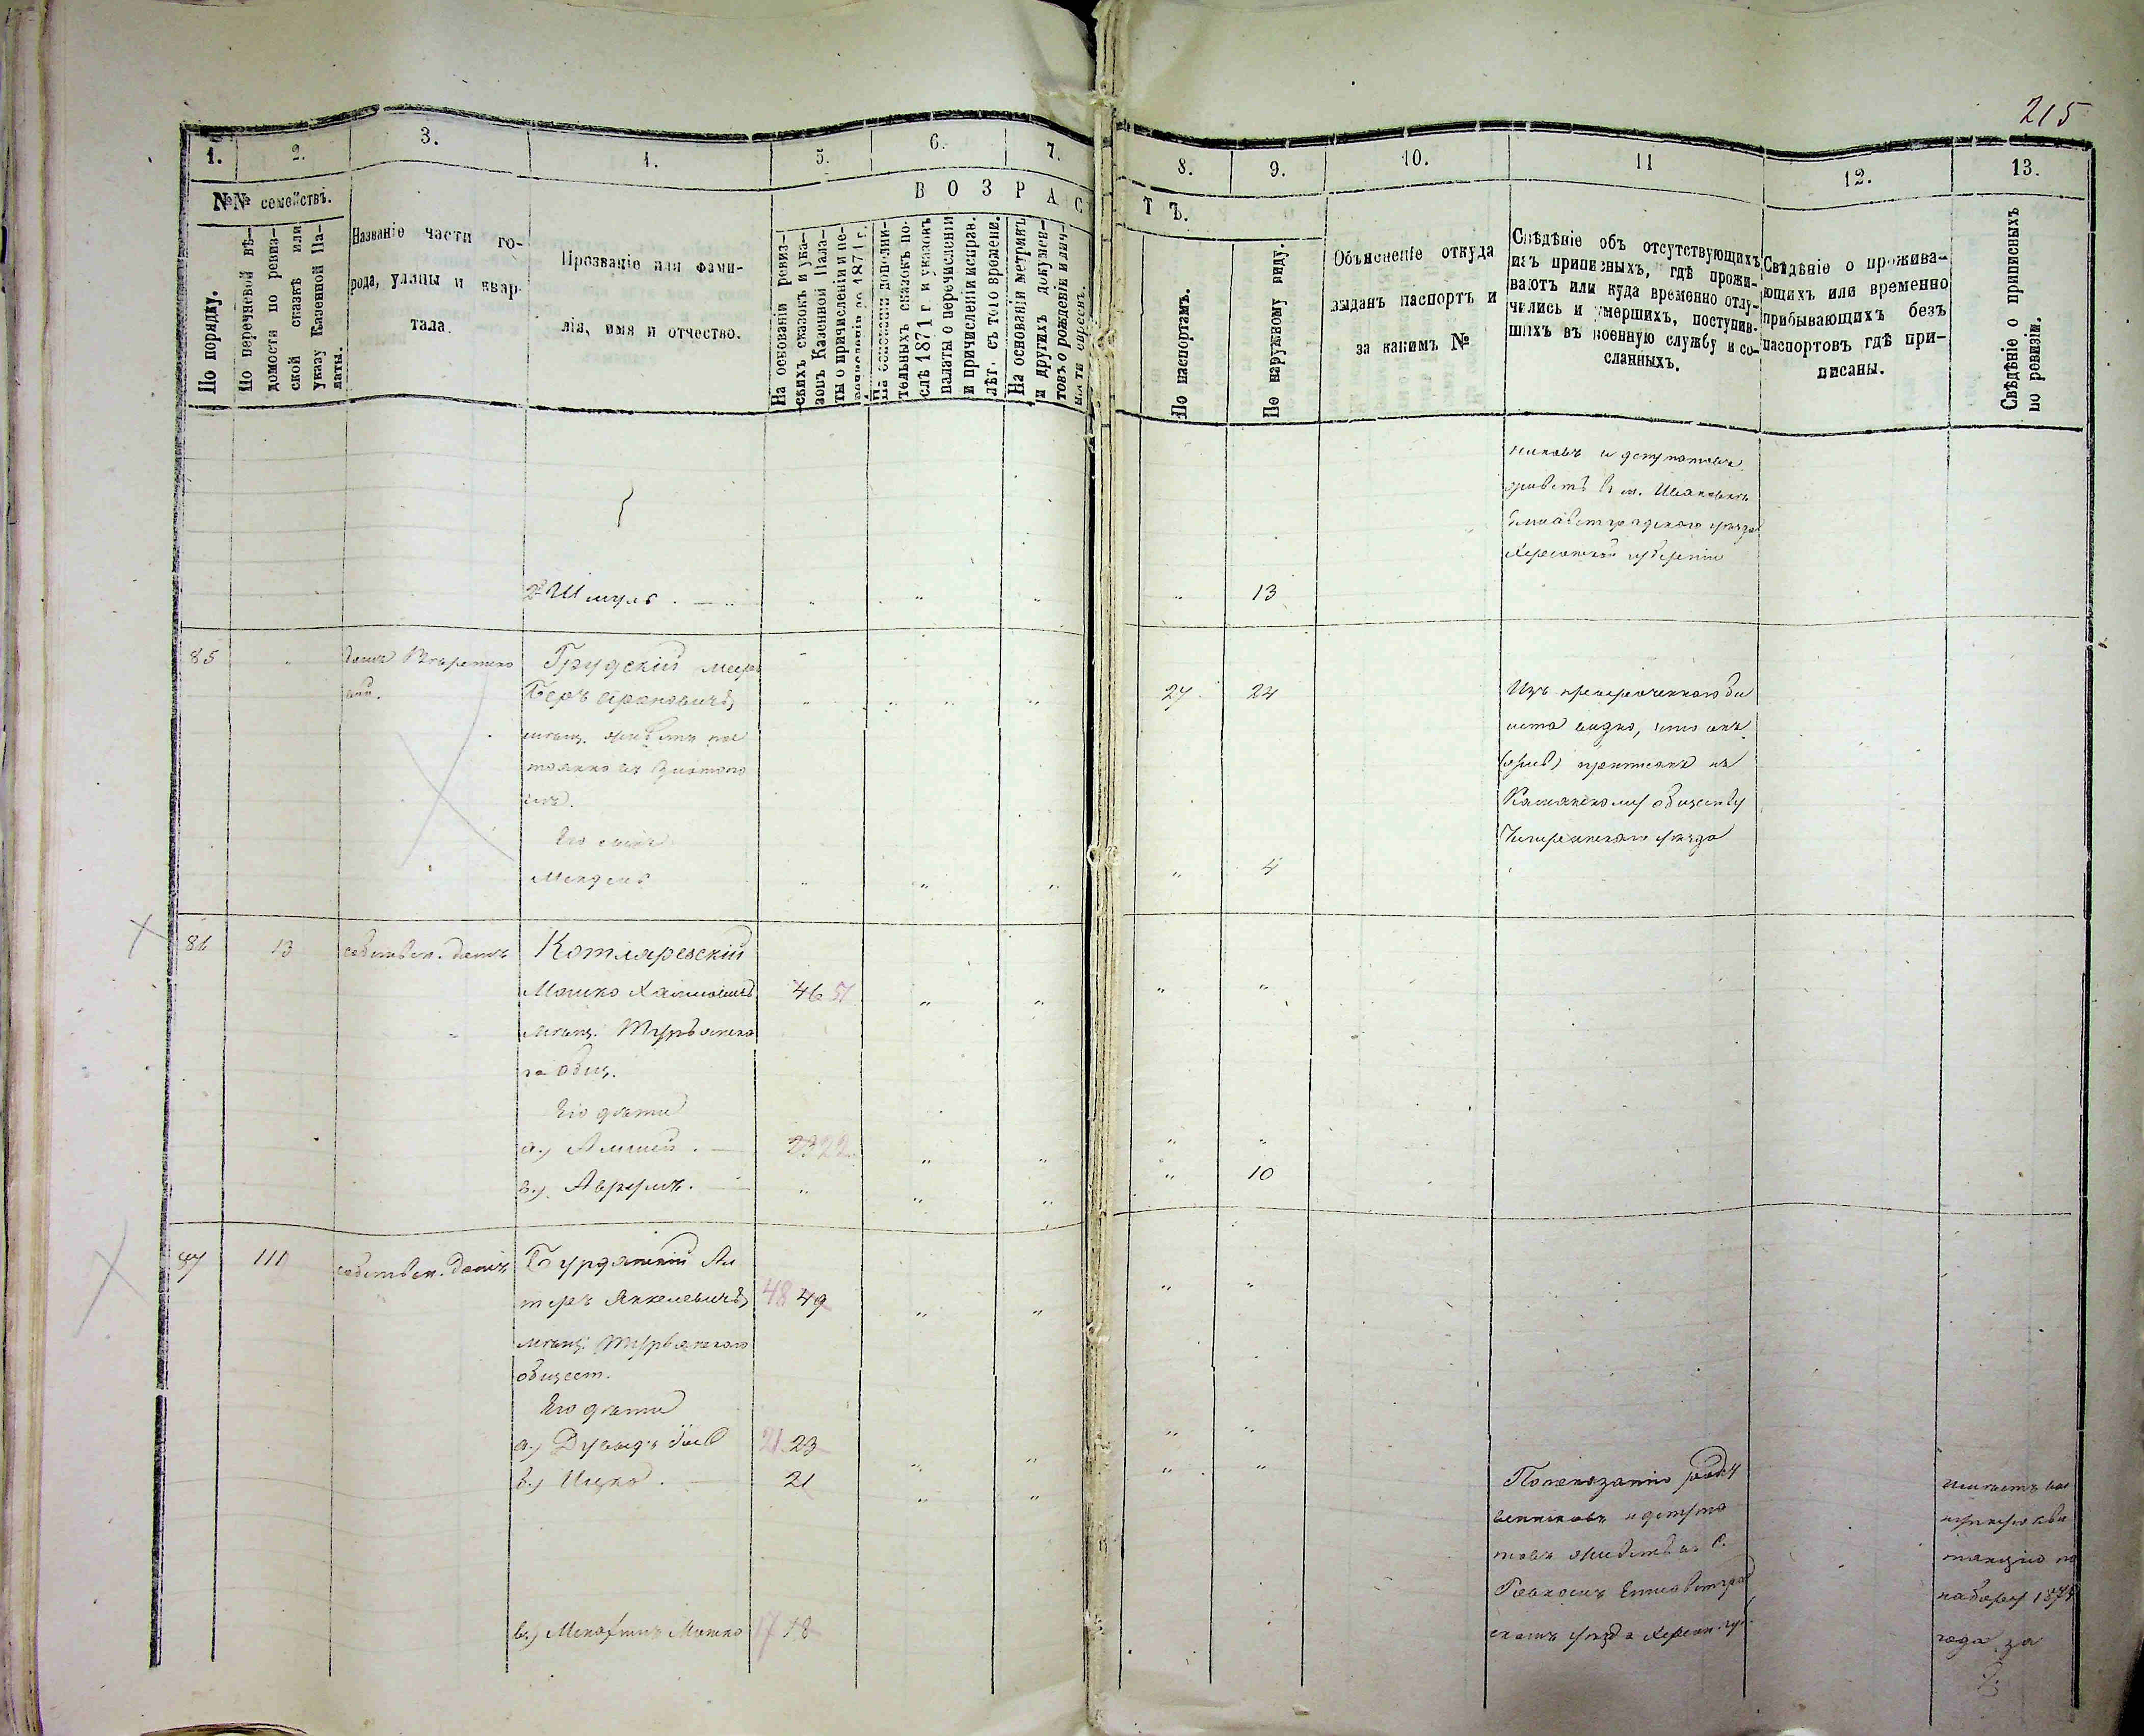 215
1. 2. 3. 4. 5. 6. 7. 8. 9. 10. 11 12. 13.
№№ семействъ.
По порядку.
По перечневой вѣ-
домости по ревиз-
ской сказкѣ или
указу Казенной Па-
латы.
Названіе части го-
рода, улицы и квар-
тала.
Прозваніе или фами-
лія, имя и отчество.
ВОЗРАСТЪ.
На основаніи ревиз-
скихъ сказокъ и ука-
зовъ Казенной Пала-
ты о причисленіи и пе-
речисленіи до 1871 г.
На основаніи дополни-
тельныхъ сказокъ по-
слѣ 1871 г. и указовъ
палаты о перечисленіи
и причисленіи исправ.
лѣт. съ того времени.
На основаніи метрикъ
и другихъ докумен-
товъ о рожденіи и лич-
ности евреевъ.
По паспортамъ.
По наружному виду.
Объясненіе откуда
выданъ паспортъ и
за какимъ №
Свѣдѣніе объ отсутствующихъ
изъ приписныхъ, гдѣ прожи-
ваютъ или куда временно отлу-
чились и умершихъ, поступив-
шихъ въ военную службу и со-
сланныхъ.
Свѣдѣніе о прожива-
ющихъ или временно
прибывающихъ безъ
паспортовъ гдѣ при-
писаны.
Свѣдѣніе о приписныхъ
по ревизіи.
никовъ и депутатовъ
Елисаветградского уѣзда
Херсонской губерніи
2 Шмуль . — " " " " " 13
85 " домъ
Грудскій
Беръ Ароновичъ " " " " 27 24
мѣщ. живетъ пос
тоянно въ Златопо
лѣ.
Изъ просроченного би
лета видно, что онъ
приписанъ къ
Каменскому обществу
Чигиринского уѣзда
Его сынъ
Мендель " " " " 4
86 13 собствен. домъ Котляревскій
Мошко Хаимовичъ 46 51 " " " "
мѣщ. Турьянска
го общ.
Его дѣти
а.) 23 22 " " " "
в.) Аврумъ. — " " " " 10
87 111 собствен. домъ Бурдянскій Ал
теръ Янкелевичъ 48 49 " " " "
мѣщ. Турьянского
общест.
Его дѣти
а.) Дувидъ 21 23 " " " "
б.) Ицко. — 21 " " " "
По показанію родст
венниковъ и депута
товъ живетъ въ с.
Елисаветград
скомъ уѣзда Херсон. губ.
имѣетъ
кви
танцію по
набору 1874
года за
в.) Мошко 17 18